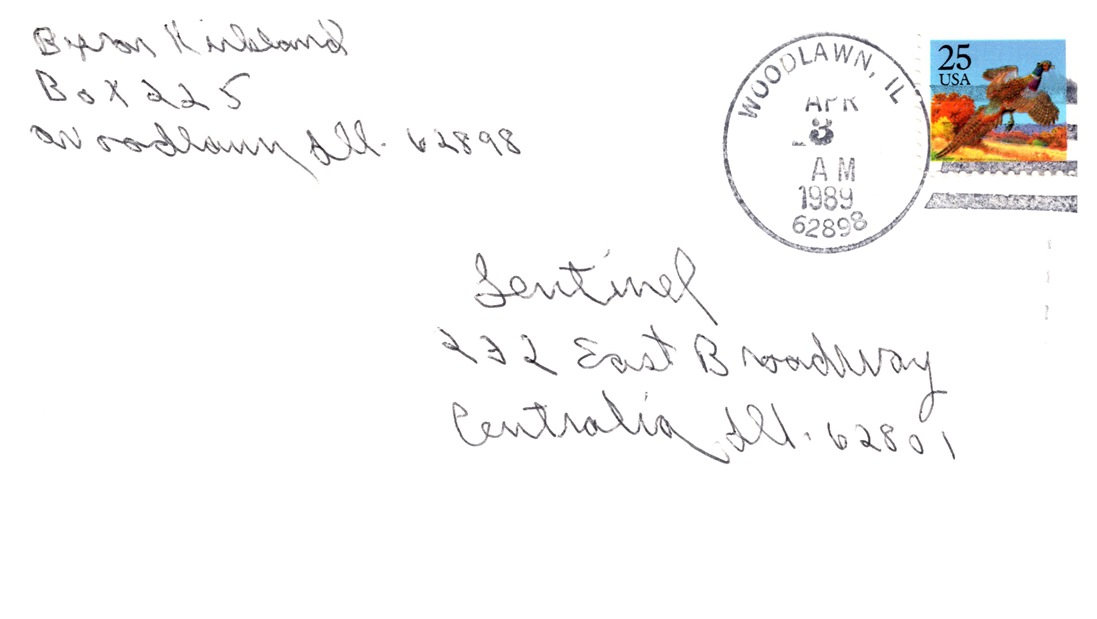 Byron Kirkland
Box 225
Woodlawn Ill. 62898
WOODLAWN, IL
APR
3
AM
1989
62898
25
USA
Sentinel
232 East Broadway
Centralia Ill. 62801